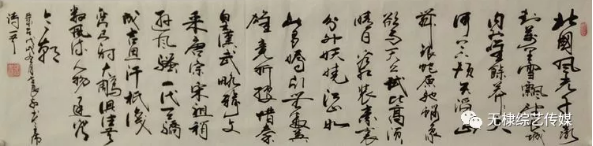 北国风光千里冰
封万里雪飘望长城
内外惟余莽莽大
河上下顿失滔滔山
舞银蛇原驰蜡象
欲与天公试比高须
晴日看红装素裹
分外妖娆江
山如此多娇引无数英
雄竞折腰惜秦
皇汉武略输文
采唐宗宋祖稍
逊风骚一代天骄
成吉思汗只识
弯弓射大雕俱往矣
数风流人物还看
今朝
无棣综艺传媒